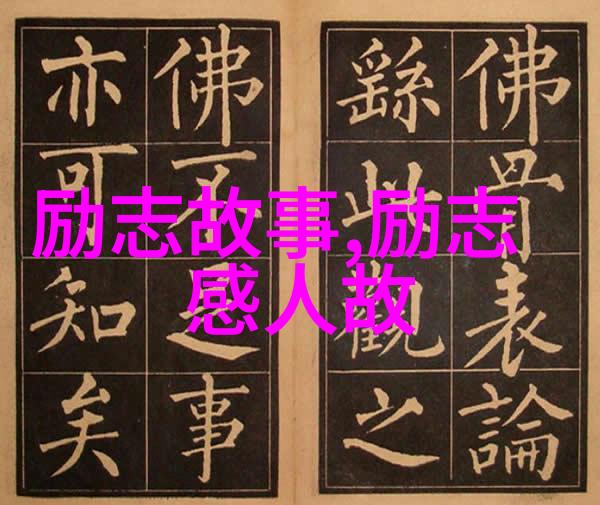 励志故事,励志
感人故
佛骨表論
繇此觀之
佛不足事
亦可知矣